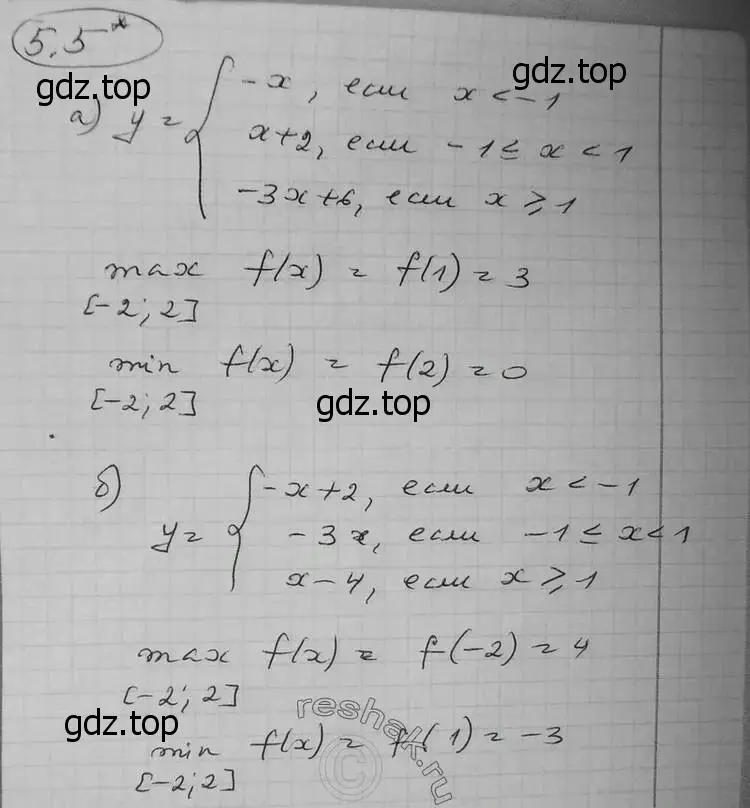 5.5*
gdz.top
gdz.top
а) y = { -x, если x < -1
x+2, если -1 ≤ x < 1
-3x+6, если x ≥ 1
max f(x) = f(1) = 3
[-2; 2]
min f(x) = f(2) = 0
[-2; 2]
gdz.top
б) y = { -x+2, если x < -1
-3x, если -1 ≤ x < 1
x-4, если x ≥ 1
max f(x) = f(-2) = 4
[-2; 2]
gdz.top
reshak.ru
©
min f(x) = f(1) = -3
[-2; 2]